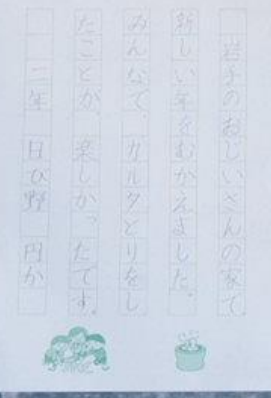 岩手のおじいさんの家で、
新しい年をむかえました。
みんなで、カルタとりをし
たことが、楽しかったです。
二年 日び野 円か